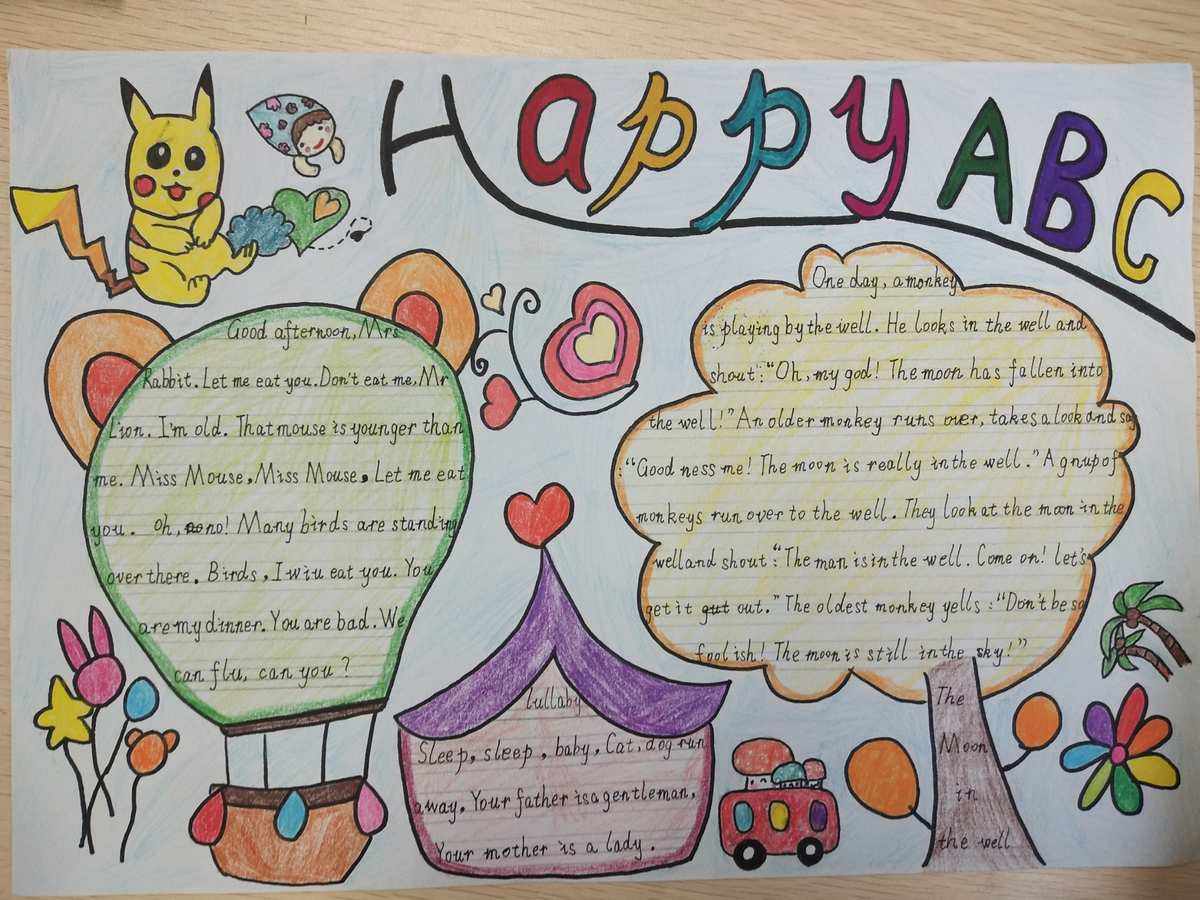 Happy ABC
Good afternoon, Mrs
Rabbit. Let me eat you. Don't eat me, Mr
Lion. I'm old. That mouse is younger than
me. Miss Mouse, Miss Mouse, Let me eat
you. Oh, no! Many birds are standing
over there. Birds, I wiu eat you. You
are my dinner. You are bad. We
can flu, can you ?
lullaby
Sleep, sleep, baby, Cat, dog run
away. Your father is a gentleman,
Your mother is a lady.
One day, a monkey
is playing by the well. He looks in the well and
shout: "Oh, my god! The moon has fallen into
the well!" An older monkey runs over, takes a look and say
: "Good ness me! The moon is really in the well." A gnup of
monkeys run over to the well. They look at the moon in the
well and shout: "The man is in the well. Come on! let's
get it out." The oldest monkey yells : "Don't be so
foolish! The moon is still in the sky!"
The
Moon
in
the well